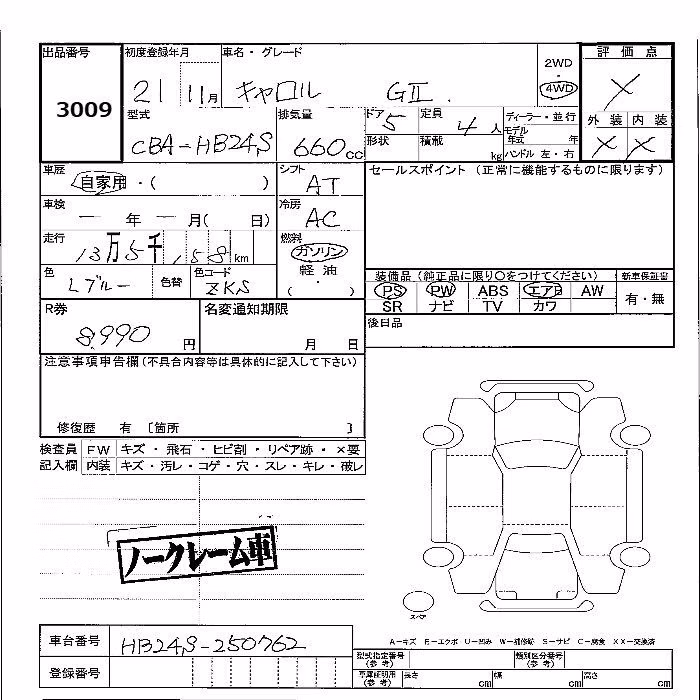 出品番号 初度登録年月 車名・グレード 評価点
3009 21 11月 キャロル GⅡ 2WD 4WD X
型式 排気量 ドア 定員 ディーラー・並行 外装 内装
CBA-HB24S 660cc 5 4人 モデル年式 年 X X
形状 積載 kg ハンドル 左・右
車歴 シフト セールスポイント (正常に機能するものに限ります)
自家用・( ) AT
車検 冷房
ー 年 ー 月( 日) AC
走行 燃料
13万5千158km ガソリン
色 色替 色コード 軽油
Lブルー ZKS ( )
装備品(純正品に限り○をつけてください) 新車保証書
PS PW ABS エアB AW 有・無
SR ナビ TV カワ
R券 名変通知期限 後日品
8,990円 月 日
注意事項申告欄(不具合内容等は具体的に記入して下さい)
修復歴 有 〔箇所 〕
検査員 FW キズ・飛石・ヒビ割・リペア跡・×要
記入欄 内装 キズ・汚レ・コゲ・穴・スレ・キレ・破レ
ノークレーム車
スペア
A-キズ E-エクボ U-凹み W-補修跡 S-サビ C-腐食 XX-交換済
車台番号 HB24S-250762 型式指定番号(参考) 類別区分番号(参考)
登録番号 車庫証明用(参考) 長さ cm 幅 cm 高さ cm